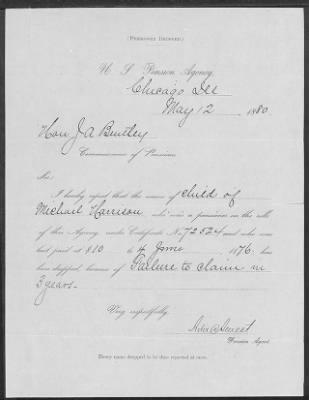 (Pensioner Dropped.)
U. S. Pension Agency,
Chicago Ills
May 12 1880
Hon J A Bentley
Commissioner of Pensions
Sir:
I hereby report that the name of child of
Michael Harrison who was a pensioner on the rolls
of this Agency under Certificate No. 72524 and who was
last paid at $8.00 to 4 June 1876, has
been dropped, because of Failure to claim in
3 years.
Very respectfully,
Pension Agent.
Every name dropped to be thus reported at once.